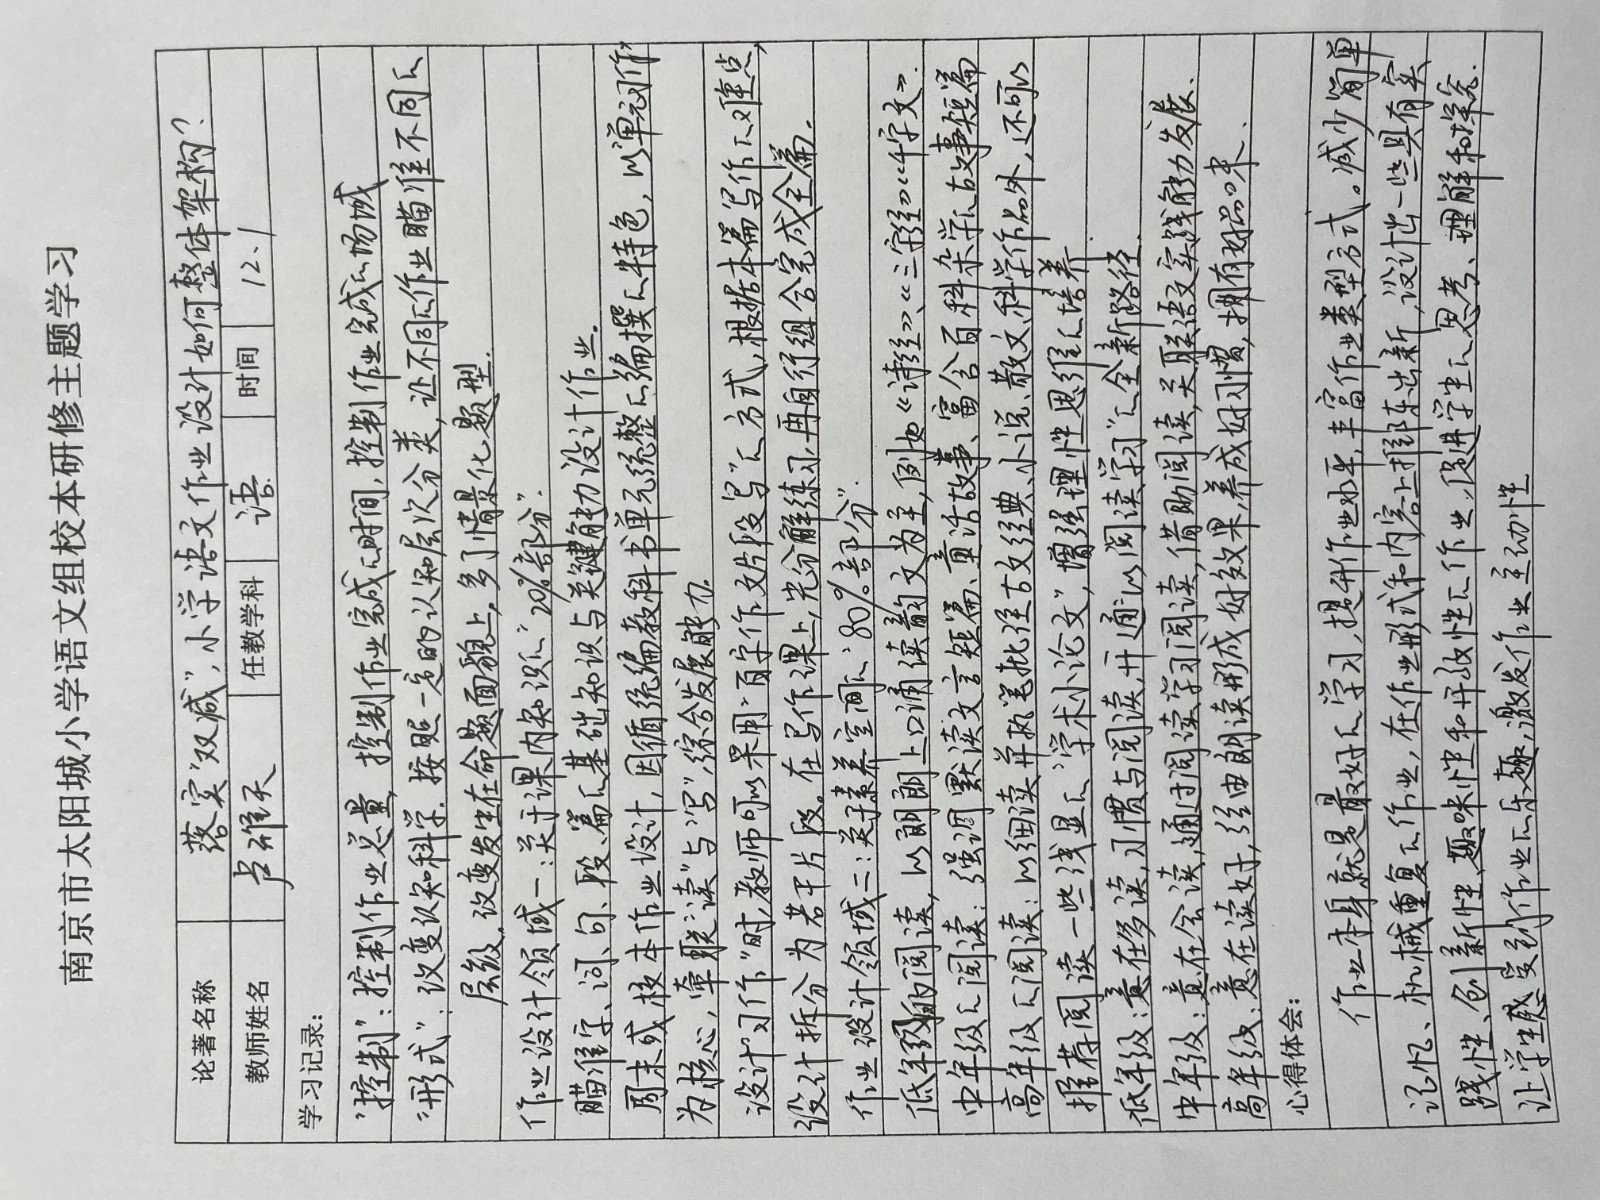 南京市太阳城小学语文组校本研修主题学习
论著名称 落实"双减",小学语文作业设计如何整体架构?
教师姓名 卢维天 任教学科 语 时间 12.1
学习记录:
"控制":控制作业总量,控制作业完成的时间,控制作业完成的场域
"形式":改变认知科学.按照一定的认知层次分类,让不同的作业瞄准不同的
层级.改变发生在命题面貌上,多了情景化题型.
作业设计领域一:关于课内知识的"20%部分".
瞄准字、词、句、段、篇的基础知识与关键能力设计作业.
周末或校本作业设计,因循统编教科书单元统整的编撰的特色,以单元习作
为核心,串联"读"与"写",综合发展能力.
设计"习作"时,教师可以采用"百字作文片段写"的方式,根据本篇写作的难点,
设计拆分为若干片段。在写作课上,先分解练习,再自行组合完成全篇.
作业设计领域二:关于素养空间的"80%部分".
低年级的阅读,以朗朗上口诵读韵文为主,例如《诗经》《三字经》《千字文》.
中年级的阅读:强调默读文言短篇、童话故事、富含百科杂学的故事短篇
高年级的阅读:以细读并执笔批注古文经典、小说、散文科学作品外,还可以
推荐阅读一些浅显的"学术小论文",增强理性思维的培养.
低年级:意在多读,习惯与阅读,开通"以阅读学习"的全新路径.
中年级:意在会读,通过阅读学习阅读,借助阅读,关联语文实践能力发展.
高年级:意在读好,经由朗读形成好效果,养成好习惯,拥有好品味.
心得体会:
作业本身就是最好的学习,提升作业水平,丰富作业类型方式。减少简单
记忆、机械重复的作业,在作业形式和内容上推陈出新,设计出一些具有实
践性、创新性、趣味性和开放性的作业,促进学生的思考、理解和探究.
让学生感受到作业的乐趣,激发作业主动性